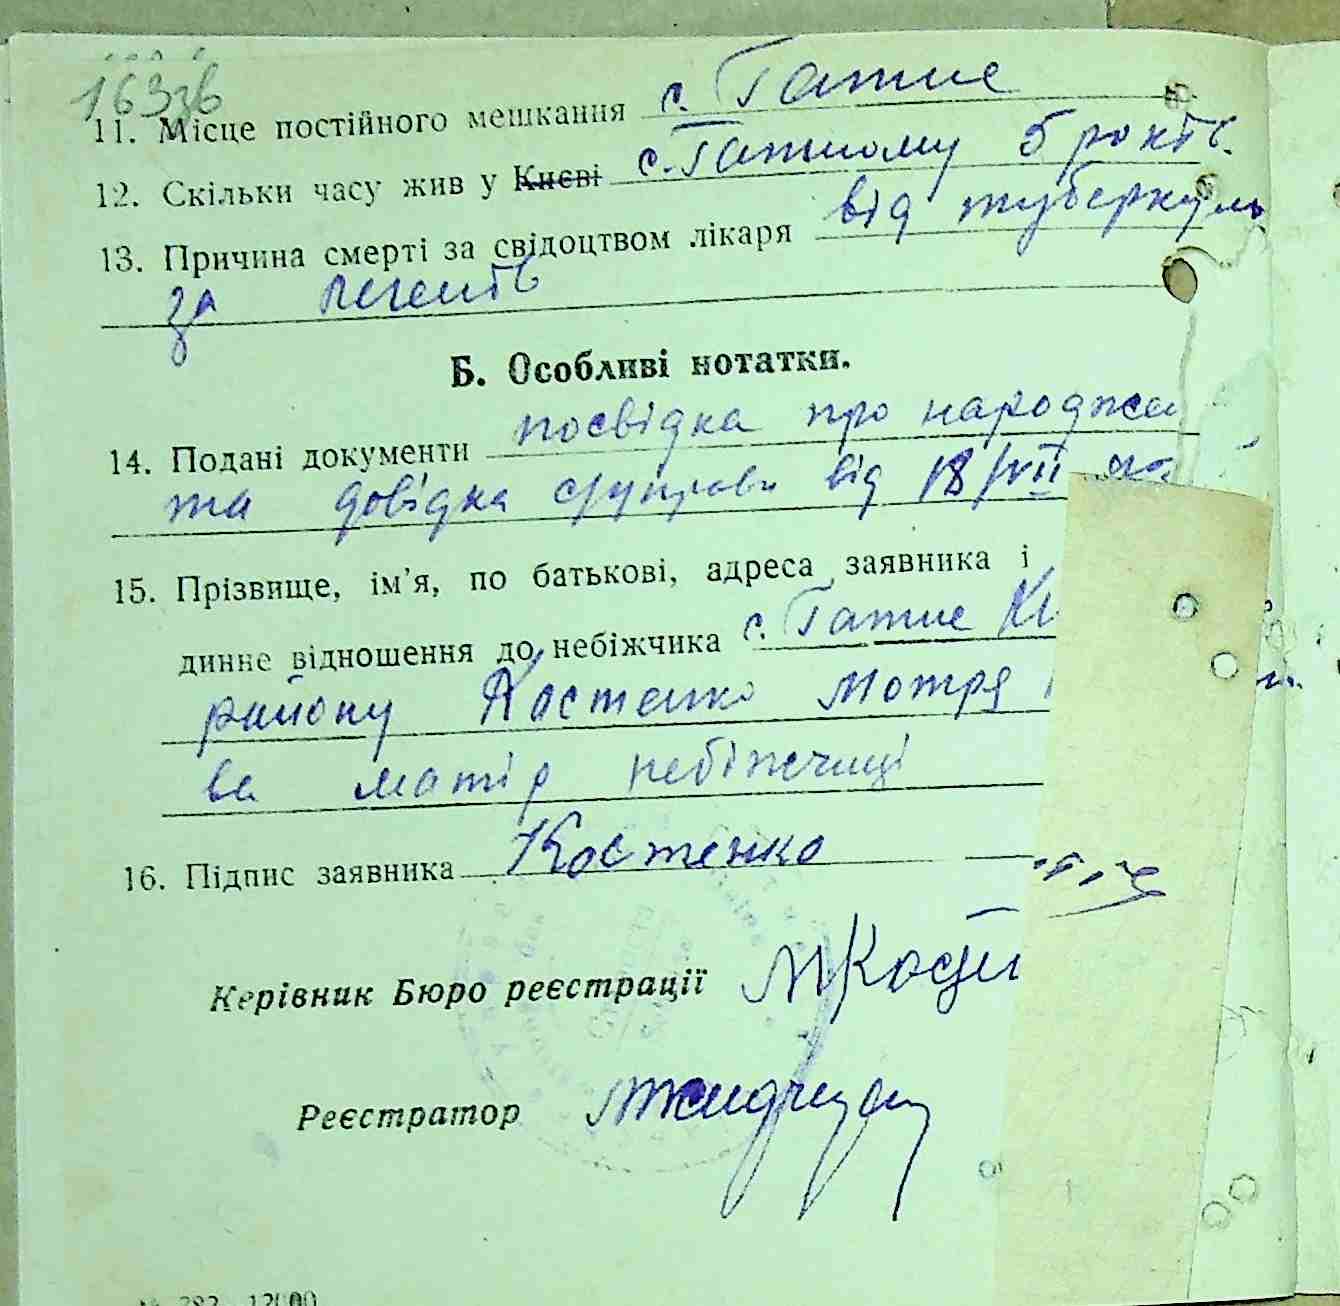 163зв
11. Місце постійного мешкання с. Гатне
12. Скільки часу жив у Києві с. Гатному 5 років.
13. Причина смерті за свідоцтвом лікаря від туберкульо
за легенів
Б. Особливі нотатки.
14. Подані документи посвідка про народжен
та довідка с/управи від 18/VII
15. Прізвище, ім'я, по батькові, адреса заявника і
динне відношення до небіжчика с. Гатне
району Костенко Мотря
ва матір небіжчиці
16. Підпис заявника Костенко
Керівник Бюро реєстрації
Реєстратор